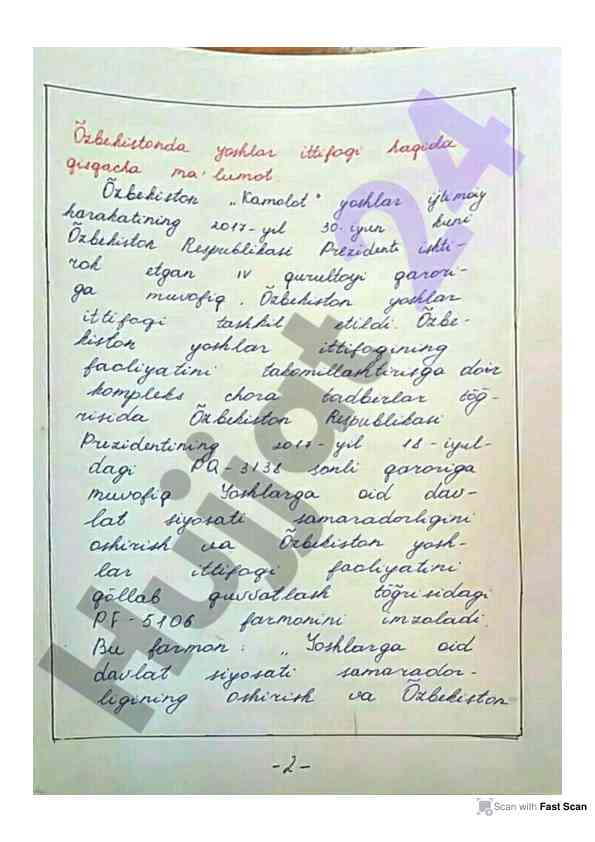 Õzbekistonda yoshlar ittifoqi haqida
qisqacha ma'lumot
Õzbekiston „Kamolot" yoshlar ijtimoiy
harakatining 2017-yil 30-iyun kuni
Õzbekiston Respublikasi Prezidenti ishti-
rok etgan IV qurultoyi qarori-
ga muvofiq. Õzbekiston yoshlar
ittifoqi tashkil etildi. Õzbe-
kiston yoshlar ittifoqining
faoliyatini takomillashtirisga doir
kompleks chora tadberlar tõğ-
risida Õzbekiston Respublikasi
Prezidentining 2017-yil 18-iyul-
dagi PQ-3138 sonli qaroriga
muvofiq Yoshlarga oid dav-
lat siyosati samaradorligini
oshirish va Õzbekiston yosh-
lar ittifoqi faoliyatini
qõllab quvvatlash tõğrisidagi
PF-5106 farmonini imzoladi.
Bu farmon: „Yoshlarga oid
davlat siyosati samarador-
ligining oshirish va Õzbekiston
-2-
Hujjat 24
Scan with Fast Scan